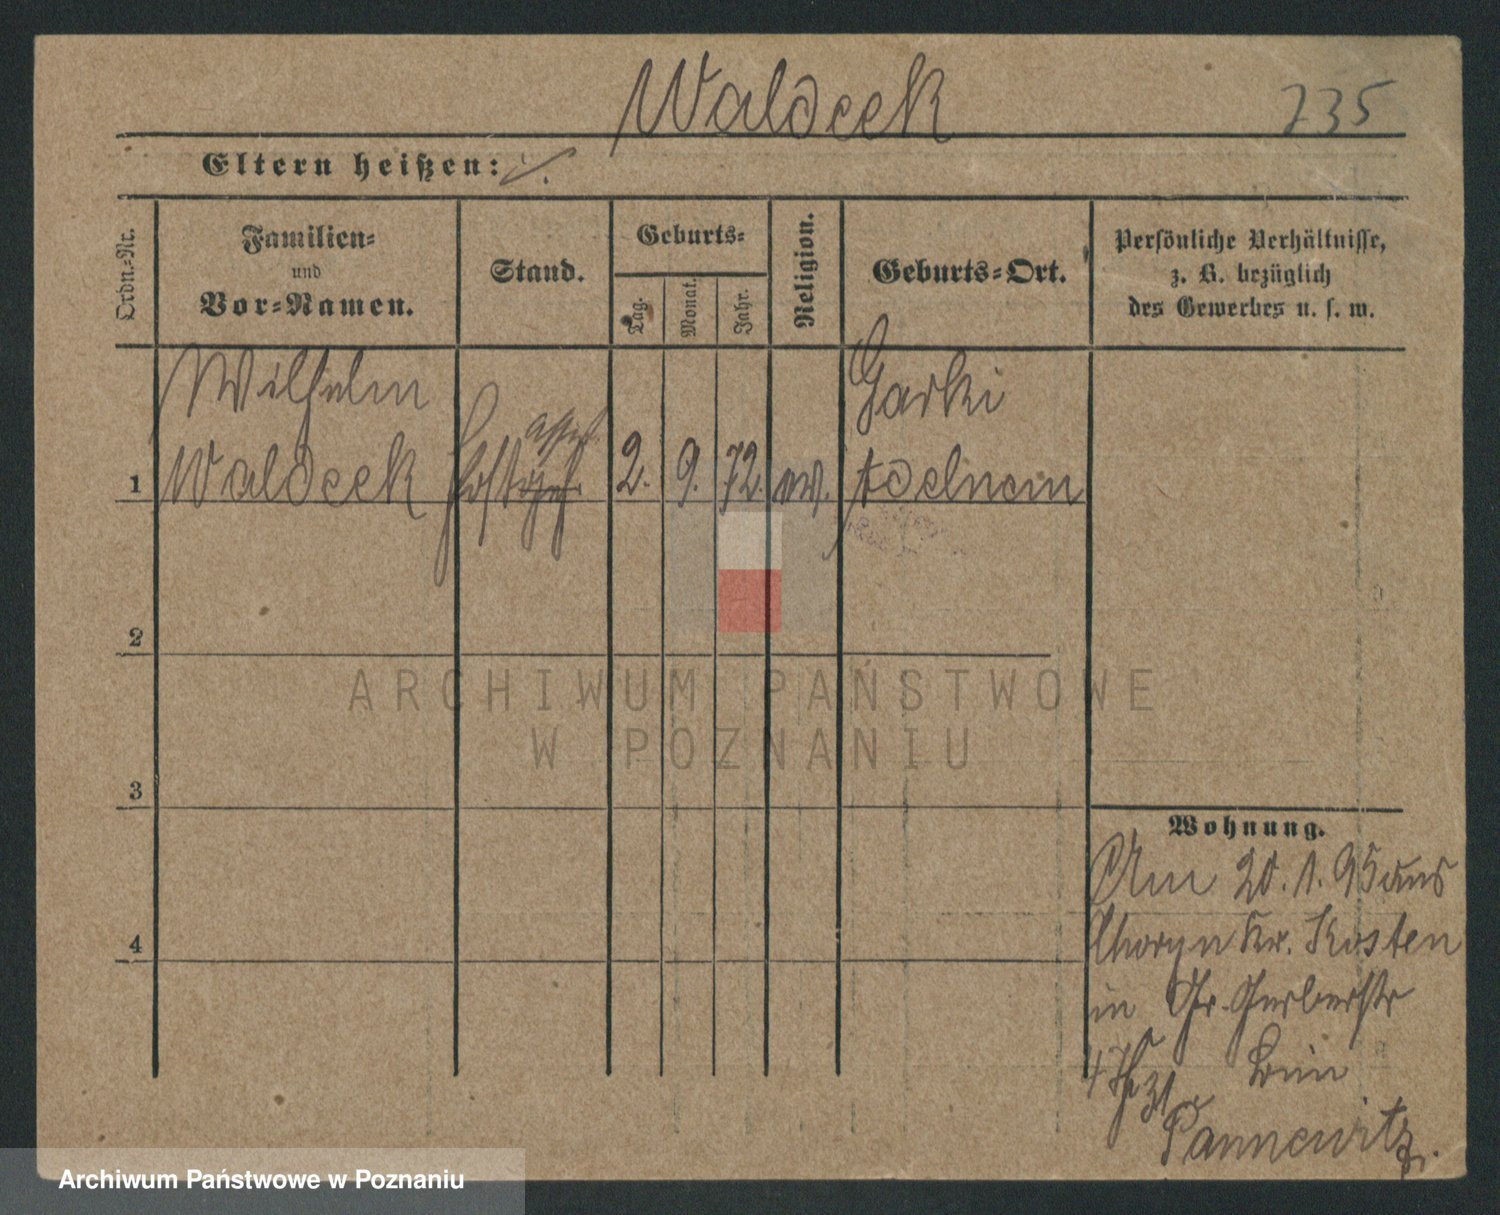 Waldeck
235
Eltern heißen: ./.
Ordn.-Nr.
Familien-
und
Vor-Namen.
Stand.
Geburts-
Tag.
Monat.
Jahr.
Religion.
Geburts-Ort.
Persönliche Verhältnisse,
z. B. bezüglich
des Gewerbes u. s. w.
Wilhelm
Garki
1 Waldeck Post 2. 9. 72. ev. Adelnau
2
3
4
Wohnung.
Am 20.1.95 aus
Choryn Kr. Kosten
in Gr. Gerberstr
bei
Pannewitz.
ARCHIWUM PAŃSTWOWE
W POZNANIU
Archiwum Państwowe w Poznaniu